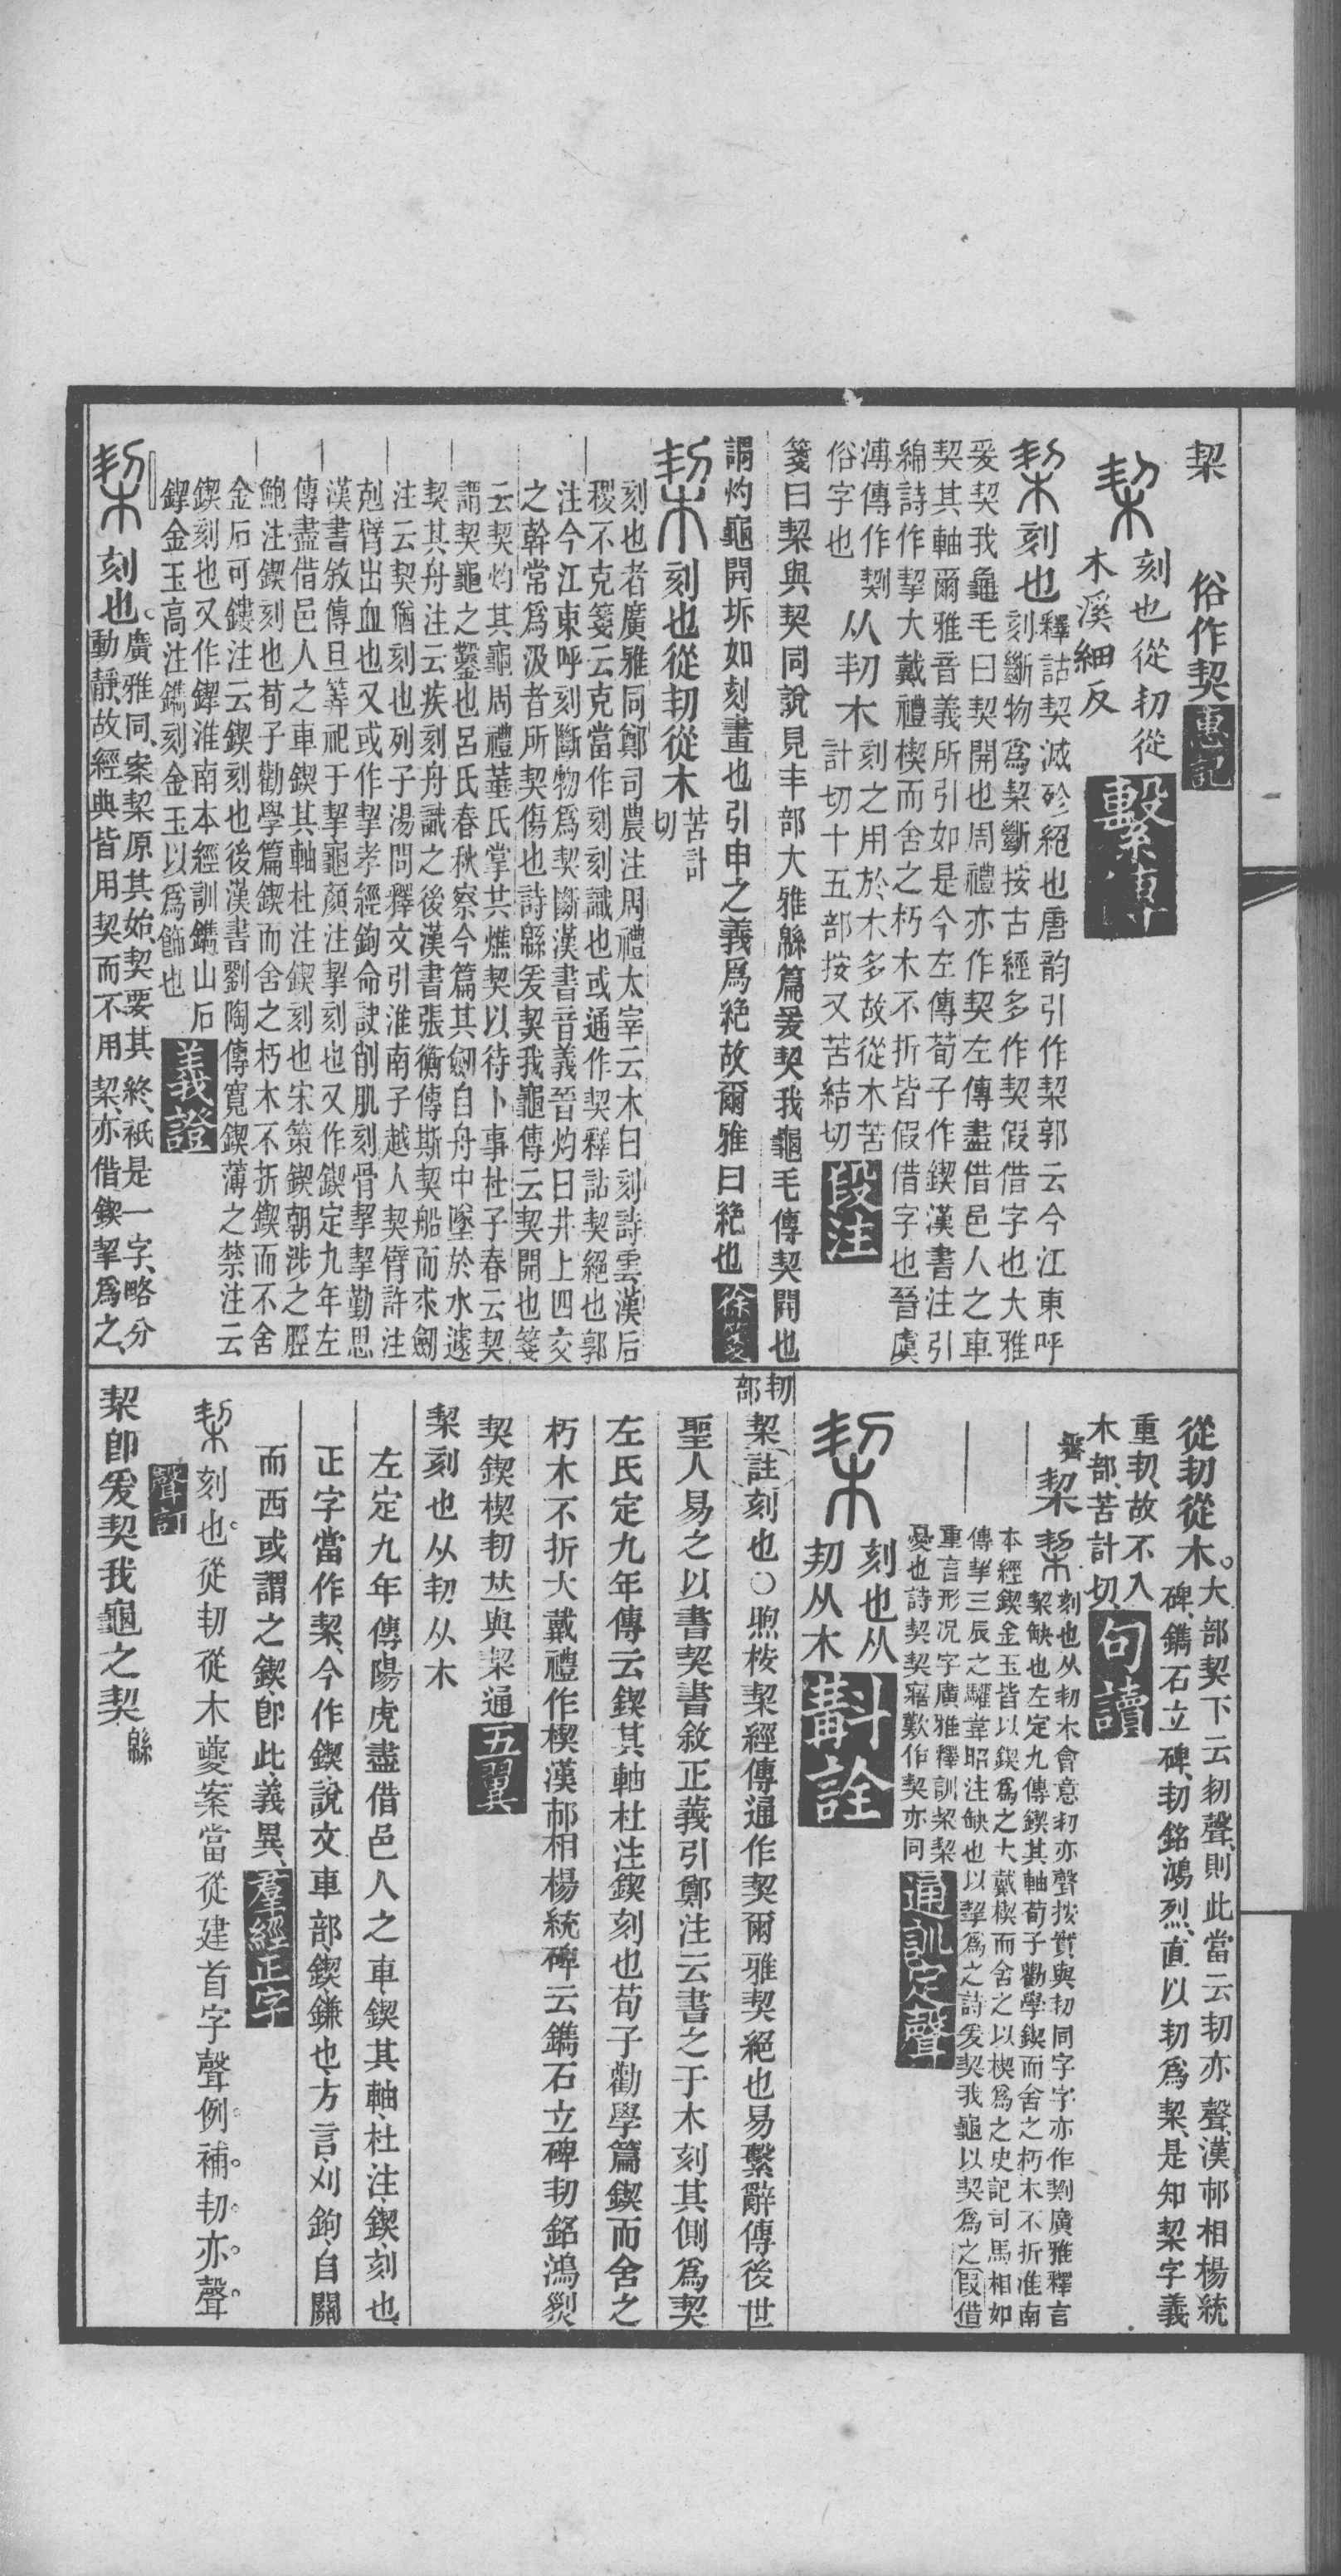 栔 俗作契 惠記
栔 刻也從㓞從
木溪細反 繫傳
栔 刻也 釋詁契滅殄絕也唐韵引作栔郭云今江東呼
刻斷物爲栔斷按古經多作契假借字也大雅
爰契我龜毛曰契開也周禮亦作契左傳盡借邑人之車
契其軸爾雅音義所引如是今左傳荀子作鍥漢書注引
綿詩作挈大戴禮楔而舍之朽木不折皆假借字也晉虞
溥傳作㓶 从㓞木 刻之用於木多故從木苦
俗字也 計切十五部按又苦結切 段注
箋曰栔與契同說見丰部大雅緜篇爰契我龜毛傳契開也
謂灼龜開坼如刻畫也引申之義爲絶故爾雅曰絶也 徐箋
栔 刻也從㓞從木 苦計
切
刻也者廣雅同鄭司農注周禮太宰云木曰刻詩雲漢后
稷不克箋云克當作刻刻識也或通作契釋詁契絕也郭
注今江東呼刻斷物爲契斷漢書音義晉灼曰井上四交
之幹常爲汲者所契傷也詩緜爰契我龜傳云契開也箋
云契灼其龜周禮菙氏掌共燋契以待卜事杜子春云契
謂契龜之鑿也呂氏春秋察今篇其劒自舟中墜於水遽
契其舟注云疾刻舟識之後漢書張衡傳斯契船而求劒
注云契猶刻也列子湯問釋文引淮南子越人契臂許注
剋臂出血也又或作挈孝經鉤命訣削肌刻骨挈挈勤思
漢書敘傳旦筭祀于挈龜顏注挈刻也又作鍥定九年左
傳盡借邑人之車鍥其軸杜注鍥刻也宋策鍥朝涉之脛
鮑注鍥刻也荀子勸學篇鍥而舍之朽木不折鍥而不舍
金石可鏤注云鍥刻也後漢書劉陶傳寬鍥薄之禁注云
鍥刻也又作鍥淮南本經訓鐫山石
鍥金玉高注鐫刻金玉以爲飾也 義證
栔 刻也。廣雅同、案栔原其始、契要其終、祇是一字、略分
動靜、故經典皆用契而不用栔、亦借鍥挈爲之、
從㓞從木。大部契下云㓞聲、則此當云㓞亦聲、漢邟相楊統
碑、鐫石立碑、㓞銘鴻烈、直以㓞爲栔、是知栔字義
重㓞、故不入
木部、苦計切 句讀
栔 栔 刻也从㓞木會意㓞亦聲按實與㓞同字字亦作㓶廣雅釋言
契缺也左定九傳鍥其軸荀子勸學鍥而舍之朽木不折淮南
本經鍥金玉皆以鍥爲之大戴楔而舍之以楔爲之史記司馬相如
傳挈三辰之驩韋昭注缺也以挈爲之詩爰契我龜以契爲之假借
重言形况字廣雅釋訓栔栔
憂也詩契契寤歎作契亦同 通訓定聲
栔 刻也从
㓞从木 斠詮
㓞部
栔註刻也○煦桉栔經傳通作契爾雅契絕也易繫辭傳後世
聖人易之以書契書敘正義引鄭注云書之于木刻其側爲契
左氏定九年傳云鍥其軸杜注鍥刻也荀子勸學篇鍥而舍之
朽木不折大戴禮作楔漢邟相楊統碑云鐫石立碑㓞銘鴻烈
契鍥楔㓞竝與栔通 五翼
栔刻也从㓞从木
左定九年傳、陽虎盡借邑人之車、鍥其軸、杜注、鍥、刻也、
正字當作栔、今作鍥、說文車部、鍥、鎌也、方言、刈鉤、自關
而西或謂之鍥、卽此、義異、 羣經正字
栔 刻也。從㓞從木。夔案當從建首字聲例補㓞亦聲
聲訂
栔卽爰契我龜之契緜